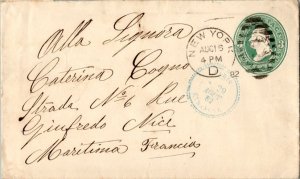 Alla Signora
Caterina Cogno
Strada No 6 Rue
Giufredo Nice
Maritima Francia
NEW YORK
AUG 16
4 PM
82
D